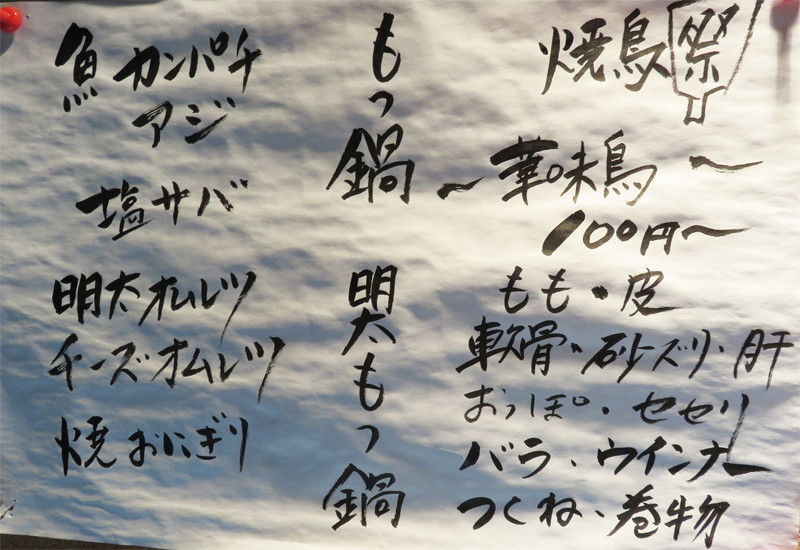 焼鳥祭
〜華味鳥〜
100円〜
もも・皮
軟骨・砂ズリ・肝
おっぽ・セセリ
バラ・ウインナー
つくね・巻物
もつ鍋
明太もつ鍋
魚 カンパチ
アジ
塩サバ
明太オムレツ
チーズオムレツ
焼おにぎり